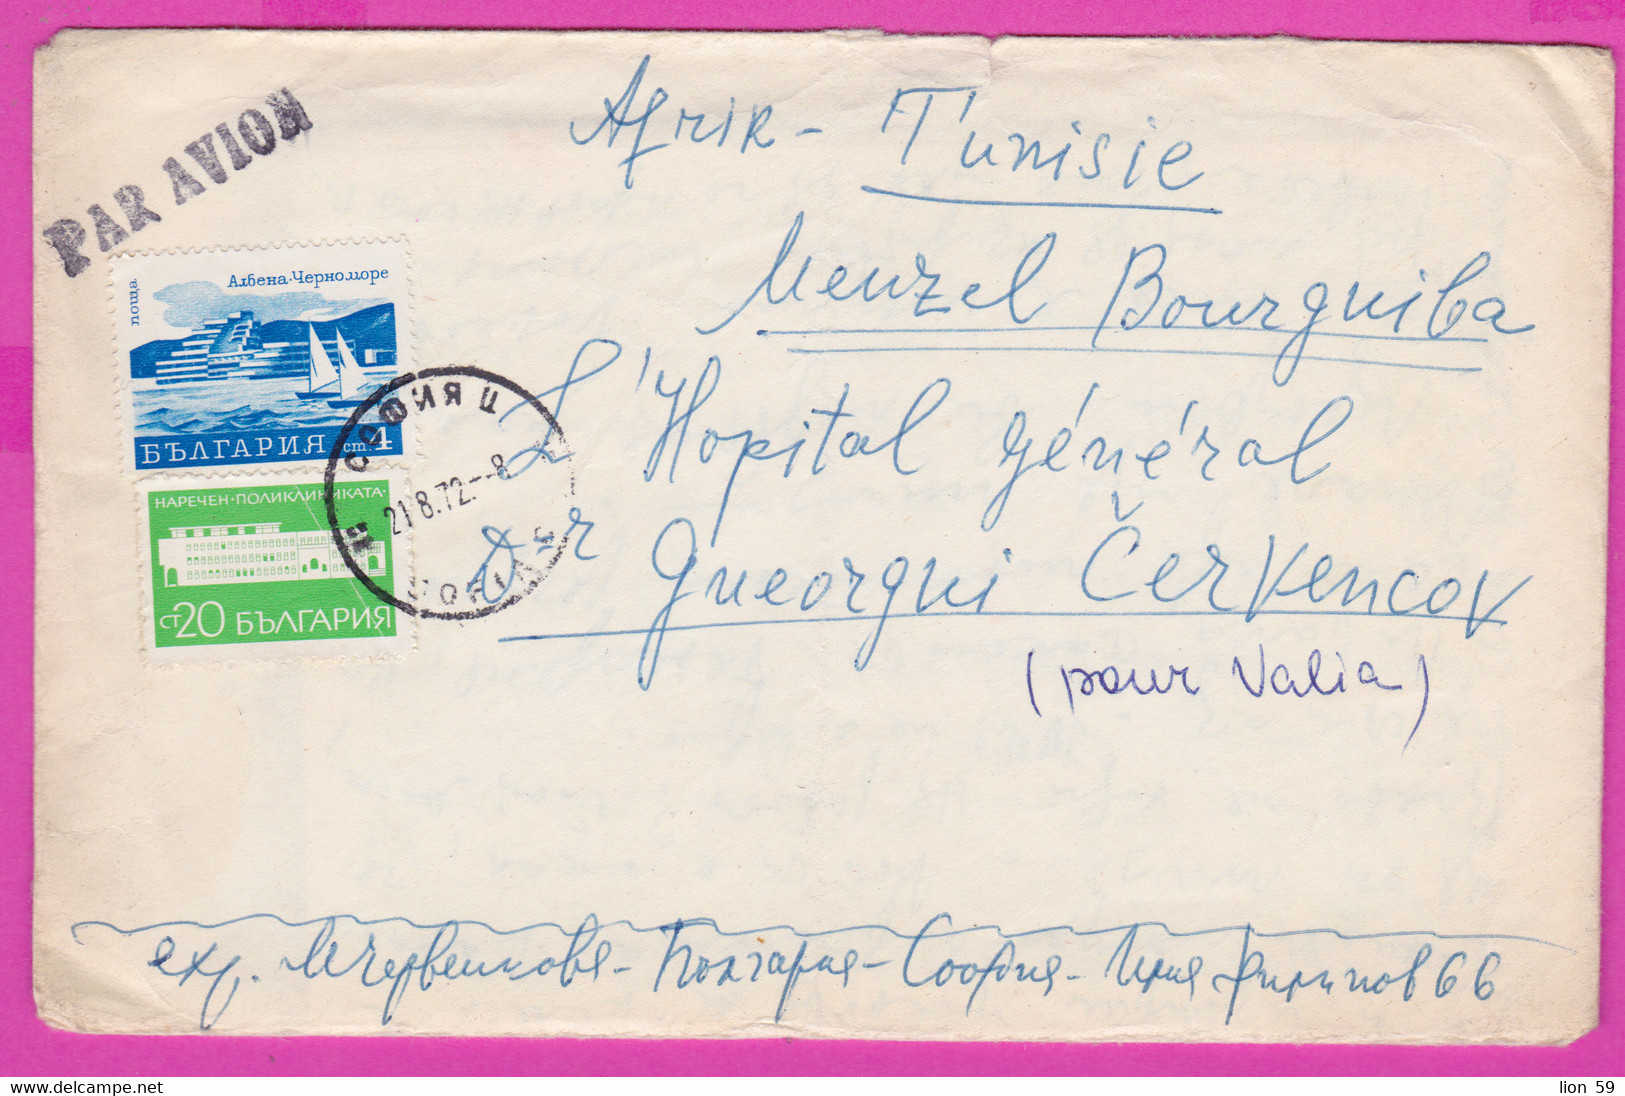 PAR AVION
Afrik - Tunisie
Албена·Черноморе
поща
БЪЛГАРИЯ ст.4
Menzel Bourguiba
СОФИЯ Ц
21.8.72.-8
SOFIA
НАРЕЧЕН·ПОЛИКЛИНИКАТА·
ст20 БЪЛГАРИЯ
L'Hopital Général
Dr Gueorgui Červencov
(pour Valia)
exp. Червенкова - България - София - Филипов 66
lion 59